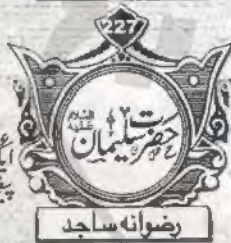 227
حضرت سلیمان علیہ السلام
رضوانہ ساجد